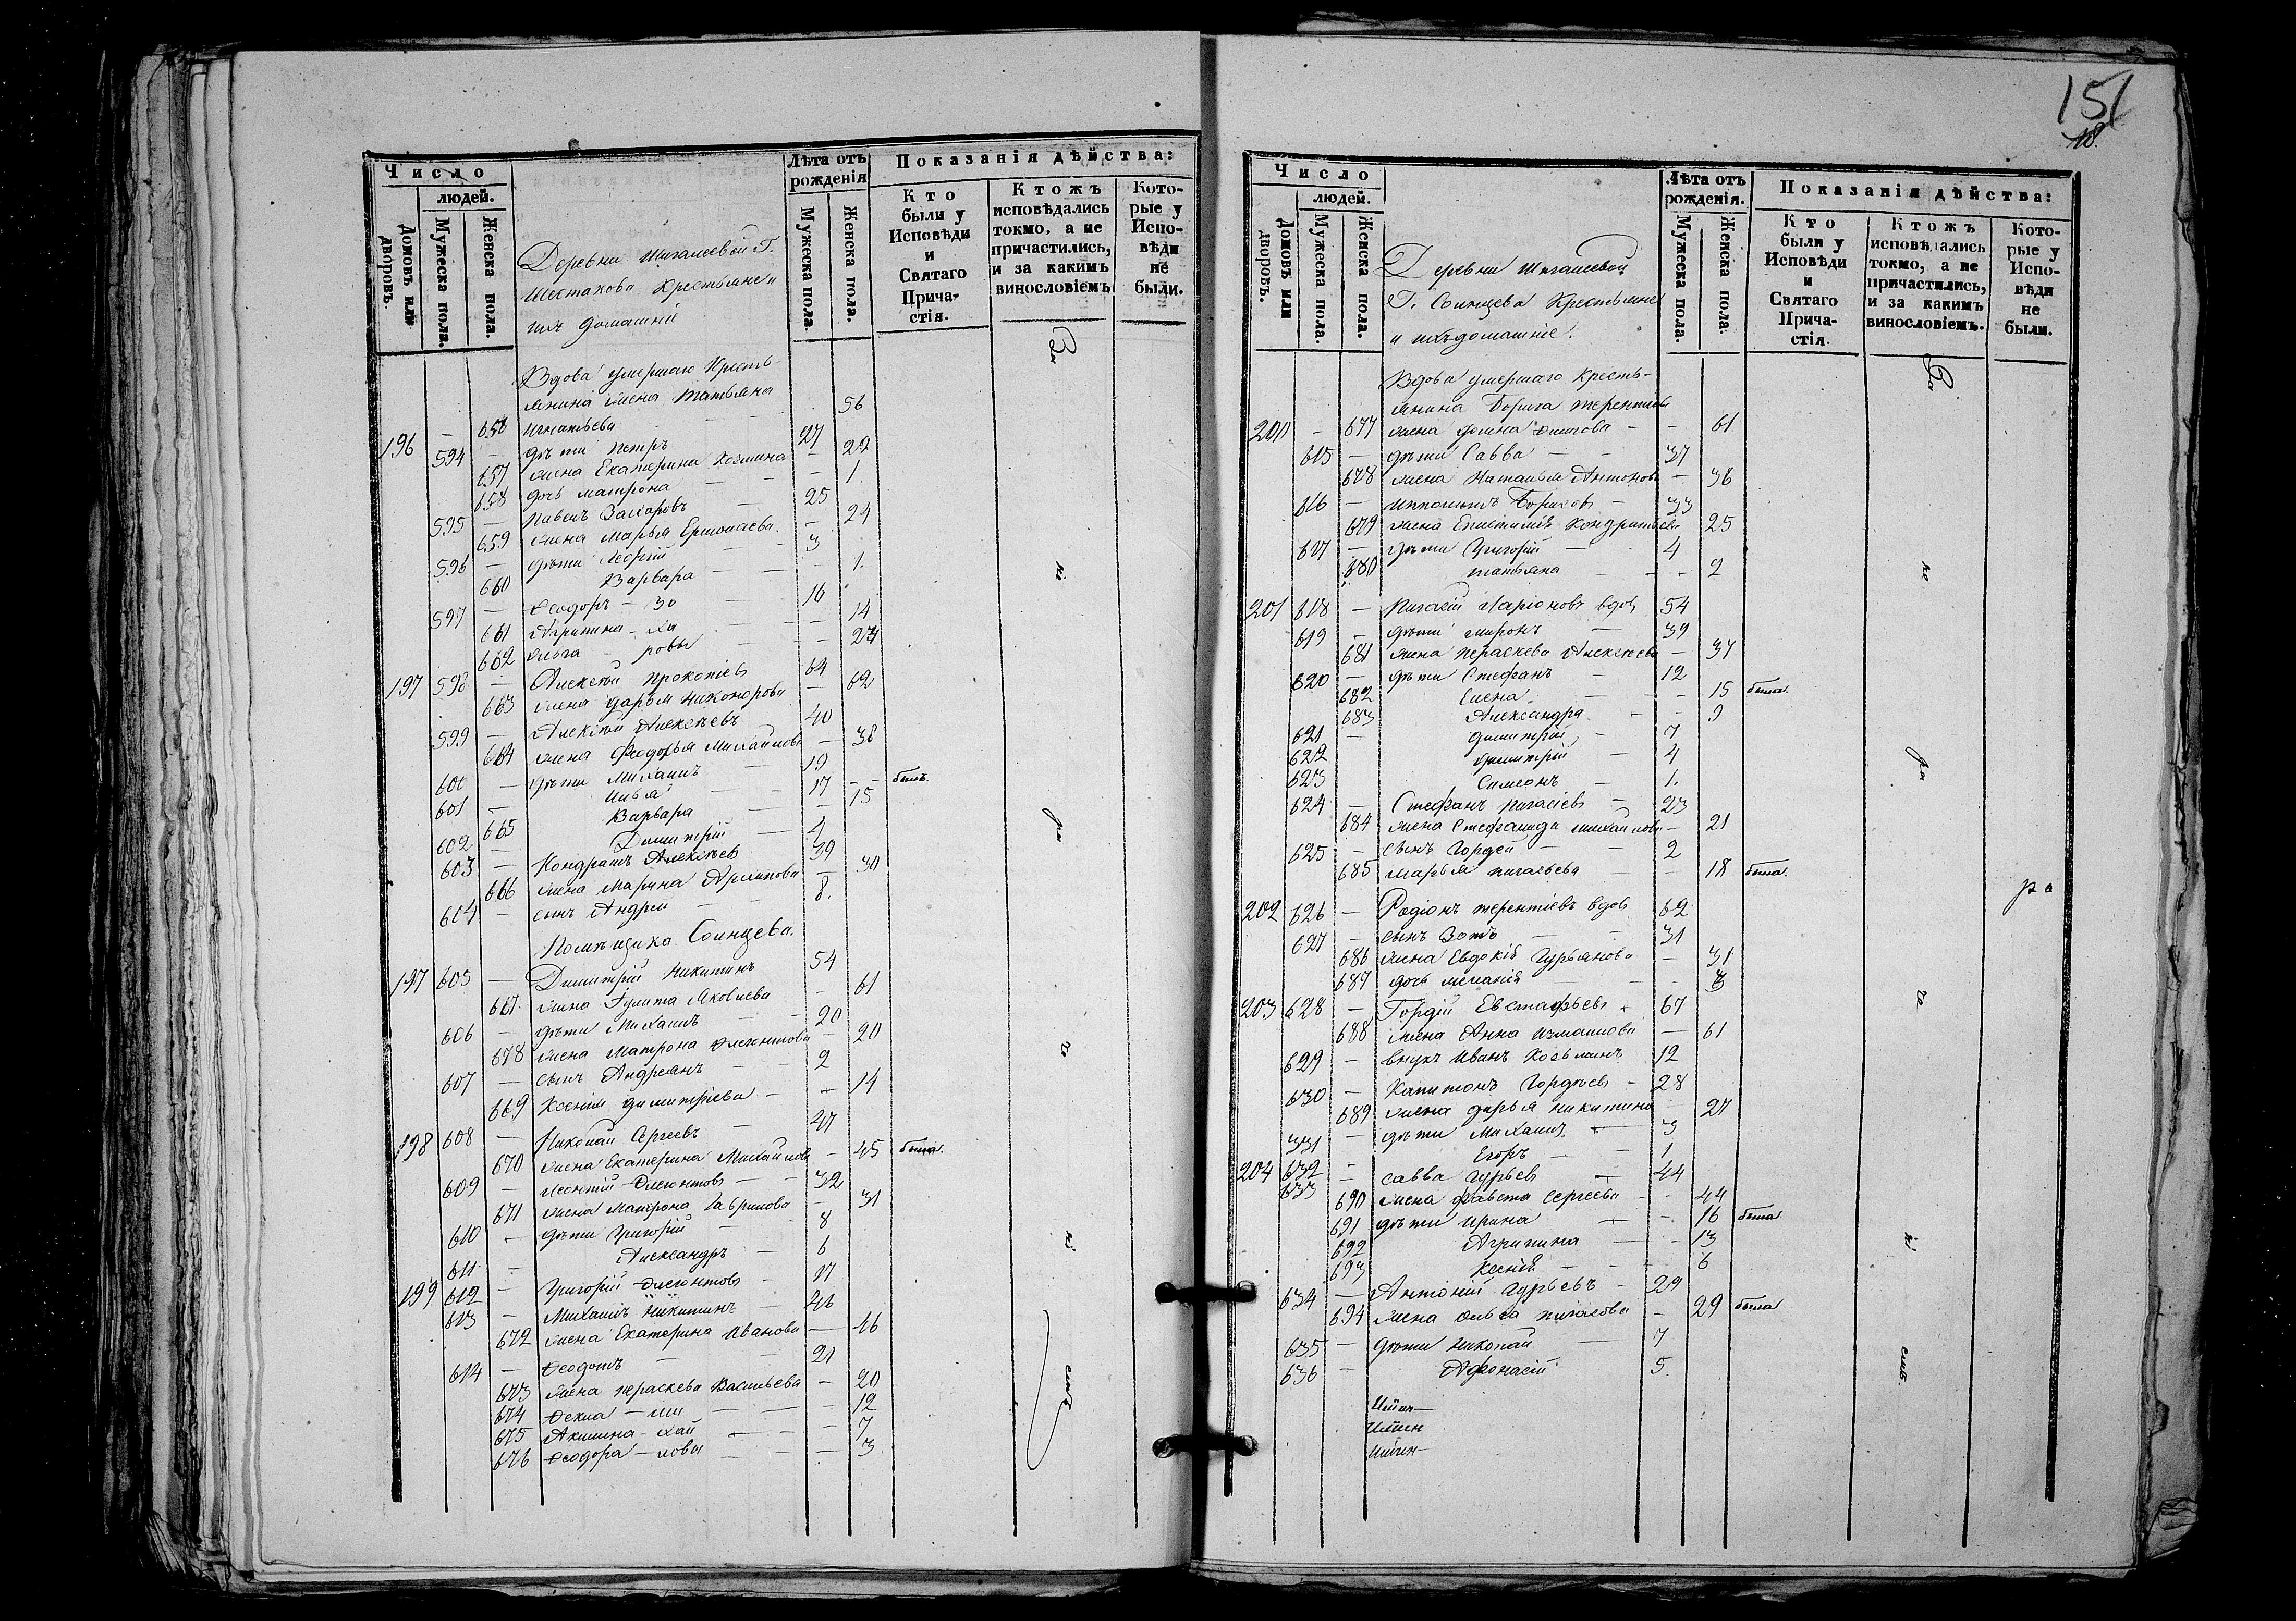 151
18.
Число
людей.
Домовъ или дворовъ.
Мужеска пола.
Женска пола.
Лѣта отъ рожденія
Мужеска пола.
Женска пола.
Показанія дѣйства:
Кто были у Исповѣди и Святаго Прича-стія.
Ктожъ исповѣдались токмо, а не причастились, и за какимъ винословіемъ
Кото-рые у Испо-вѣди не были.
Деревни Шигалеевой Г.
Шестакова Крестьяне и
ихъ домашніе
Вдова умершаго Кресть
янина жена Татьяна
196 — 656 Игнатьева 56
594 — дѣти Петръ 27
657 жена Екатерина Козмина — 22
658 дочь Матрона — 1.
595 — Павелъ Захаровъ 25
659 жена Марья Ермолаева — 24
596 — дѣти Георгій 3
660 Варвара — 1.
597 — Ѳеодоръ — За 16
661 Агрипина — ха — 14
662 Ольга — ровы — 24
197 598 — Алексѣй Прокопіевъ 64
663 жена Дарья Никонорова — 62
599 — Алексѣй Алексѣевъ 40
664 жена Ѳеодосья Михайлова — 38
600 — дѣти Михаилъ 19
601 — Илья 17 — былъ.
665 Варвара — 15
602 — Димитрій 4
603 — Кондратъ Алексѣевъ 39
666 жена Марина Архипова — 30
604 — сынъ Андрей 8.
Помѣщика Солнцева.
197 605 — Димитрій Никитинъ 54
667 жена Іулита Яковлева — 61
606 — дѣти Михаилъ 20
678 жена Матрона Леонтова — 20
607 — сынъ Андреянъ 2
669 Ксенія Димитріева — 14
198 608 — Николай Сергеевъ 47
670 жена Екатерина Михайлова — 45 была.
609 — Леонтій 32
671 жена Матрона Гаврилова — 31
610 — дѣти Григорій 8
611 — Александръ 6
199 612 — Григорій 17
613 — Михаилъ Никитинъ 46
672 жена Екатерина Иванова — 46
614 — Ѳеодотъ 21
673 жена Параскева Васильева — 20
674 Ѳекла — ми — 12
675 Акилина — хай — 7
676 Ѳеодора — ловы — 3
Число
людей.
Домовъ или дворовъ.
Мужеска пола.
Женска пола.
Лѣта отъ рожденія.
Мужеска пола.
Женска пола.
Показанія дѣйства:
Кто были у Исповѣди и Святаго Прича-стія.
Ктожъ исповѣдались токмо, а не причастились, и за какимъ винословіемъ.
Кото-рые у Испо-вѣди не были.
Деревни Шигалеевой
Г. Солнцева Крестьяне
и ихъ домашніе.
Вдова умершаго Кресть-
янина Бориса Терентьева
200 — 677 жена — 61
615 — дѣти Савва 37
678 жена Наталья Антонова — 36
616 — Ипполитъ Борисовъ 33
679 жена Епистимія Кондратьева 25
617 — дѣти Григорій 4
680 Татьяна — 2
201 618 — Пигасій Ларіоновъ вдов 54
619 — дѣти Миронъ 39
681 жена Параскева Алексѣева — 37
620 — дѣти Стефанъ 12
682 Елена — 15 была.
683 Александра — 9
621 — Димитрій 7
622 Димитрій 4
623 Симеонъ 1.
624 — Стефанъ Пигасіевъ 23
684 жена Стефанида Михайлова — 21
625 — сынъ Гордей 2
685 Марья Пигасьева — 18 была.
202 626 — Родіонъ Терентіевъ вдов 62
627 — сынъ Зотъ 31
686 жена Евдокія Гурьянова — 31
687 дочь Меланія — 3
203 628 — Гордій Евстафьевъ 67
688 жена Анна Измаилова — 61
629 — внукъ Иванъ Козьминъ 12
630 — Капитонъ Гордѣевъ 28
689 жена Дарья Никитина 27
331 — дѣти Михаилъ 3
632 — Егоръ 1
204 633 — Савва Гурьевъ 44
690 жена Фавста Сергеева — 44
691 дѣти Ирина — 16 была
692 Агрипина — 13
693 Ксенія — 6
634 — Антоній Гурьевъ 29
694 жена Ольга Пигасова — 29 была
635 — дѣти Николай 7
636 — Афонасій 5.